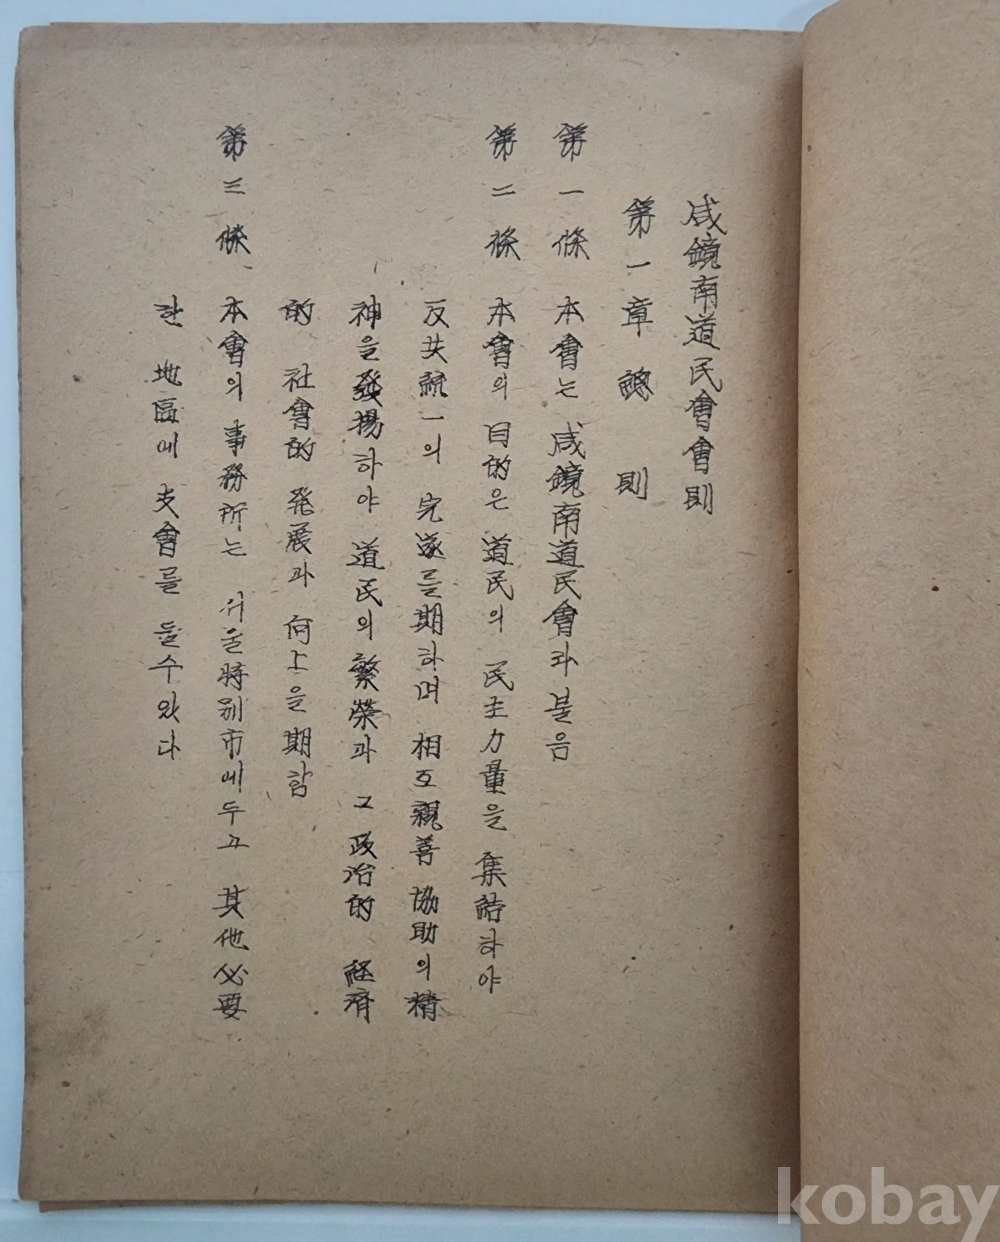 咸鏡南道民會會則
第一章 總則
第一條 本會는 咸鏡南道民會라불음
第二條 本會의 目的은 道民의 民主力量을 集結하야
反共統一의 完遂를期하며 相互親善協助의精
神을發揚하야 道民의繁榮과 그政治的 経済
的 社會的 発展과 向上을期함
第三條 本會의 事務所는 서울特別市에두고 其他必要
한 地區에 支會를 둘수있다
kobay